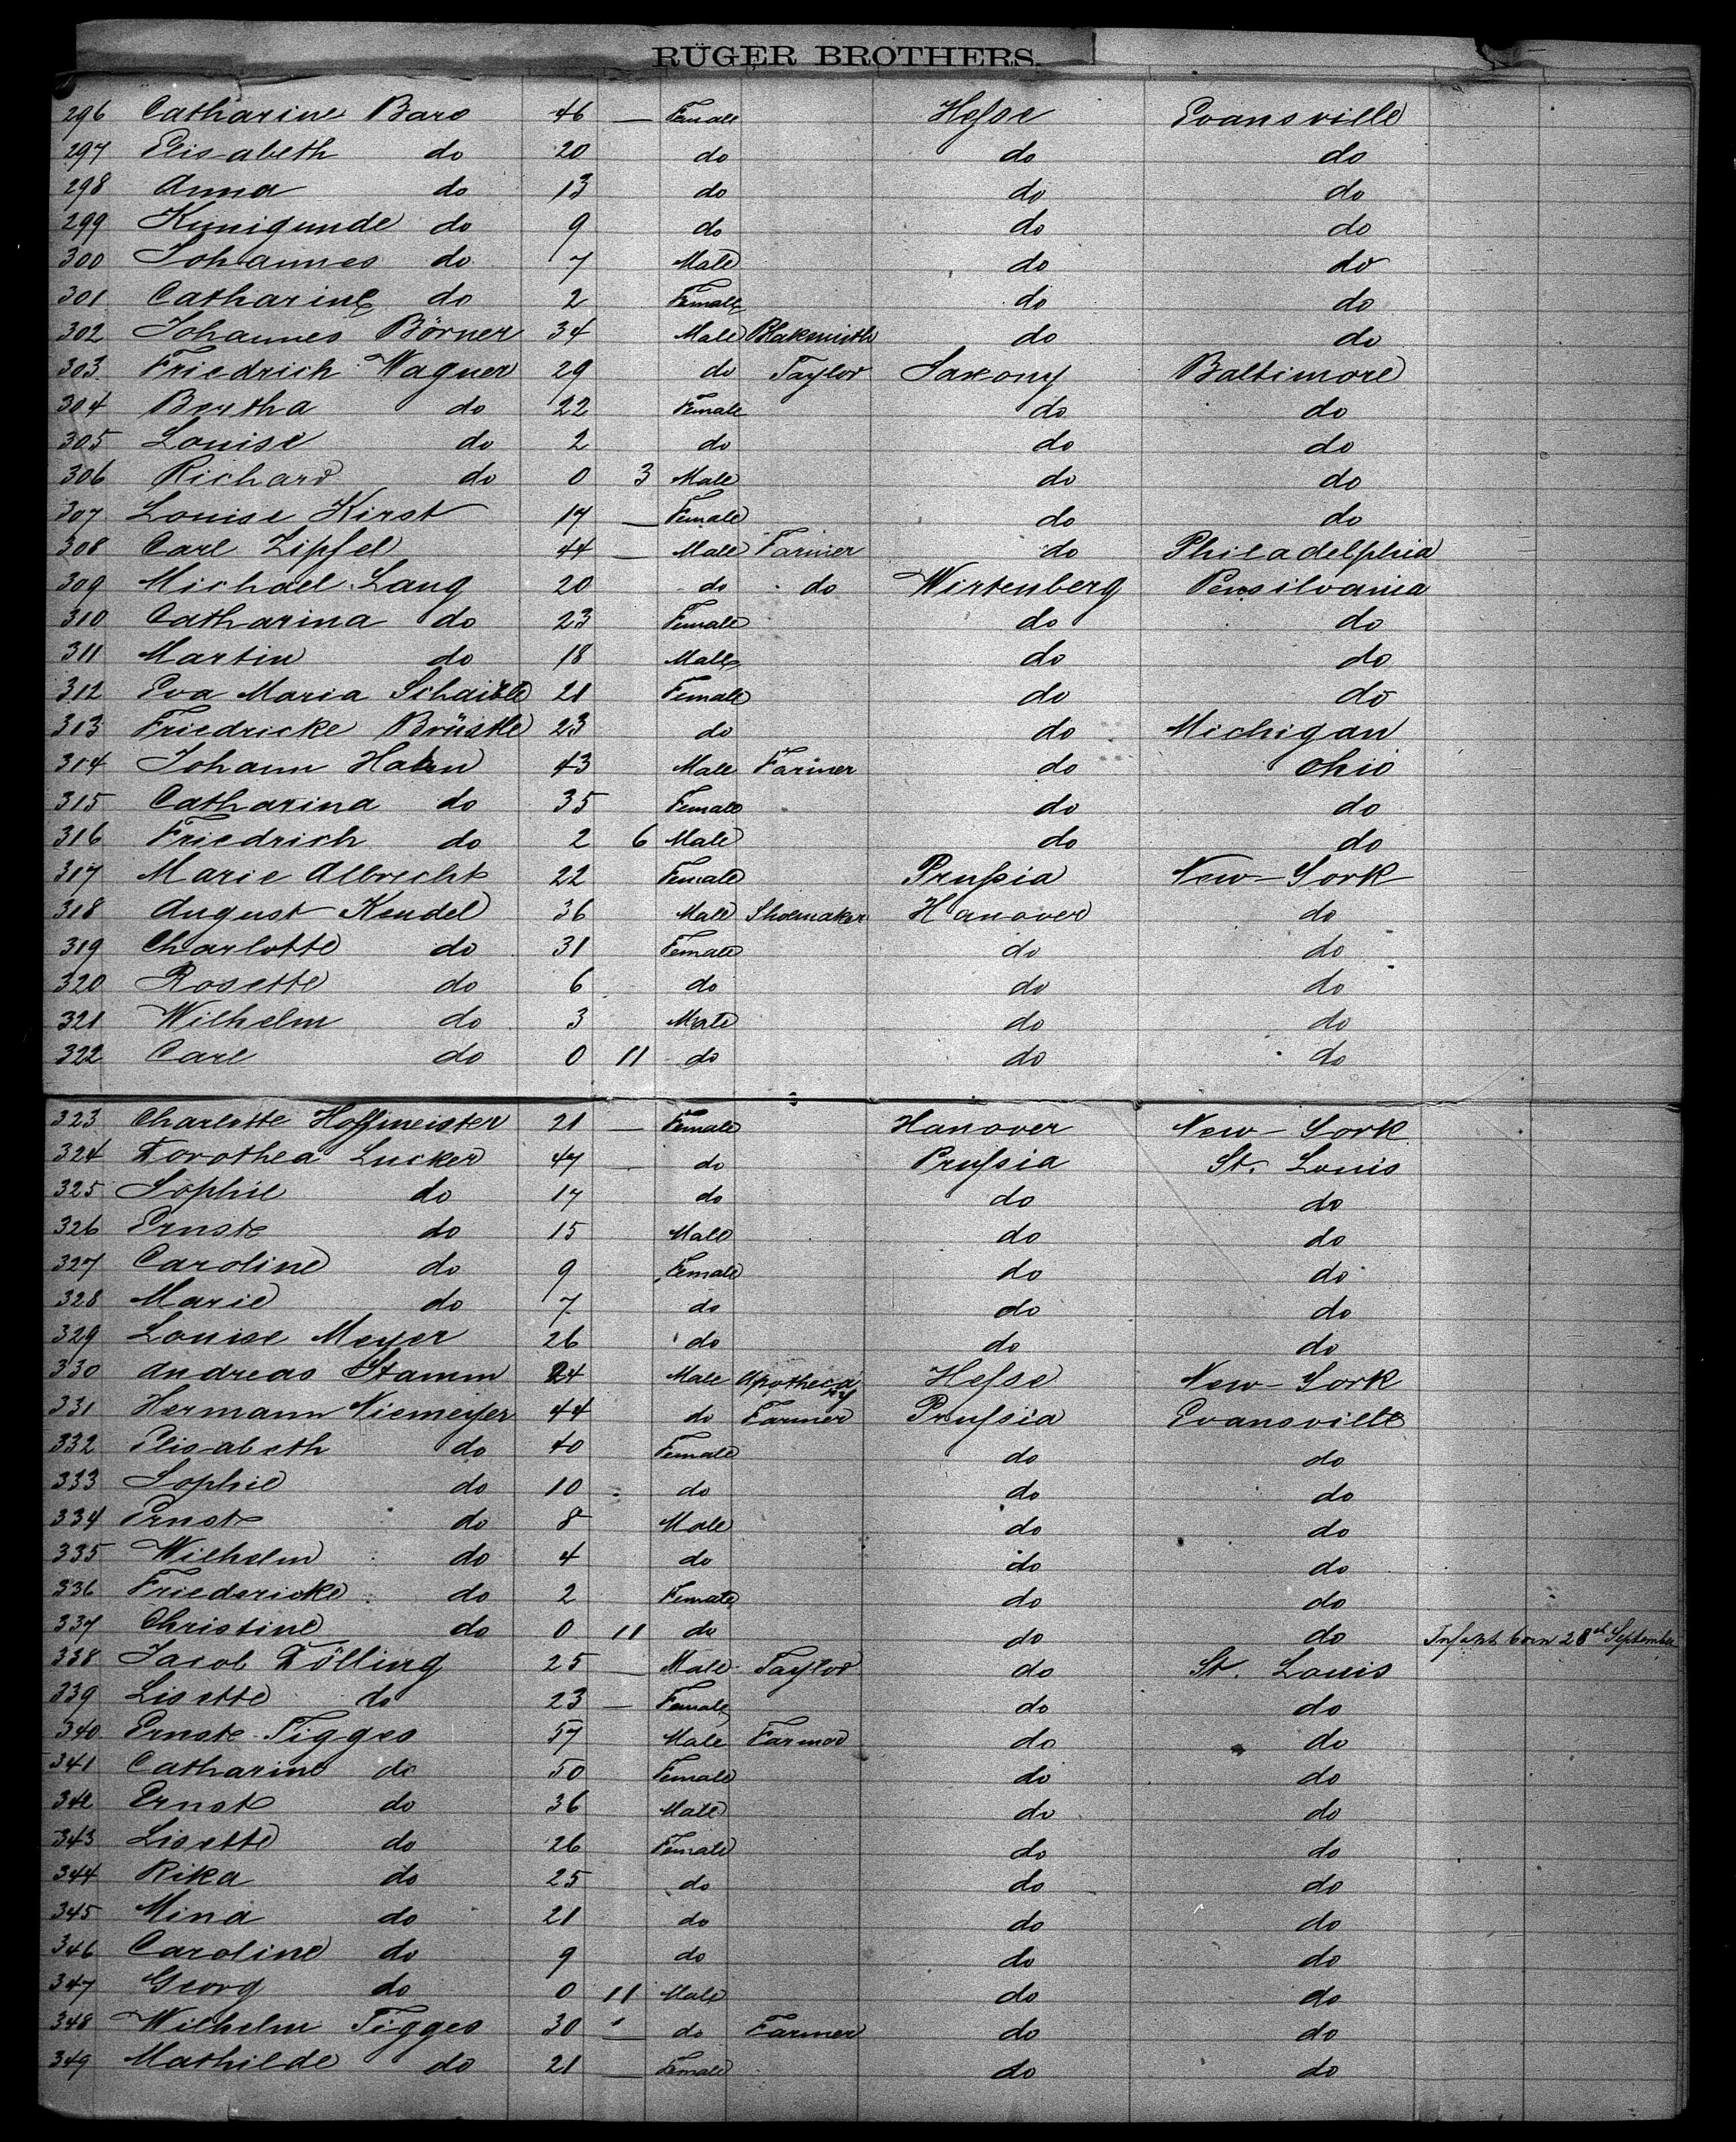 RÜGER BROTHERS.
296 Catharine Bard 46 — Female Hesse Evansville
297 Elisabeth do 20 do do do
298 Anna do 13 do do do
299 Kunigunde do 9 do do do
300 Johannes do 7 Male do do
301 Catharine do 2 Female do do
302 Johannes Börner 34 Male Blaksmith do do
303 Friedrich Wagner 29 do Taylor Saxony Baltimore
304 Bertha do 22 Female do do
305 Louise do 2 do do do
306 Richard do 0 3 Male do do
307 Louise Kirst 17 — Female do do
308 Carl Zipfel 44 — Male Farmer do Philadelphia
309 Michael Lang 20 do do Wirtenberg Pensilvania
310 Catharina do 23 Female do do
311 Martin do 18 Male do do
312 Eva Maria Schaible 21 Female do do
313 Friedricke Brüstle 23 do do Michigan
314 Johann Hahn 43 Male Farmer do Ohio
315 Catharina do 35 Female do do
316 Friedrich do 2 6 Male do do
317 Marie Albrecht 22 Female Prussia New-York
318 August Kendel 36 Male Shoemaker Hanover do
319 Charlotte do 31 Female do do
320 Rosette do 6 do do do
321 Wilhelm do 3 Male do do
322 Carl do 0 11 do do do
323 Charlotte Hoffmeister 21 — Female Hanover New-York
324 Dorothea Lucker 47 — do Prussia St. Louis
325 Sophie do 17 do do do
326 Ernst do 15 Male do do
327 Caroline do 9 Female do do
328 Marie do 7 do do do
329 Louise Meyer 26 do do do
330 Andreas Stamm 24 Male Apothecary Hesse New-York
331 Hermann Niemeyer 44 do Farmer Prussia Evansville
332 Elisabeth do 40 Female do do
333 Sophie do 10 do do do
334 Ernst do 8 Male do do
335 Wilhelm do 4 do do do
336 Friedericke do 2 Female do do
337 Christine do 0 11 do do do Infant born 28th September
338 Jacob Dölling 25 — Male Taylor do St. Louis
339 Lisette do 23 — Female do do
340 Ernst Tigges 57 Male Farmer do do
341 Catharine do 50 Female do do
342 Ernst do 36 Male do do
343 Lisette do 26 Female do do
344 Rika do 25 do do do
345 Mina do 21 do do do
346 Caroline do 9 do do do
347 Georg do 0 11 Male do do
348 Wilhelm Tigges 30 — do Farmer do do
349 Mathilde do 21 — Female do do